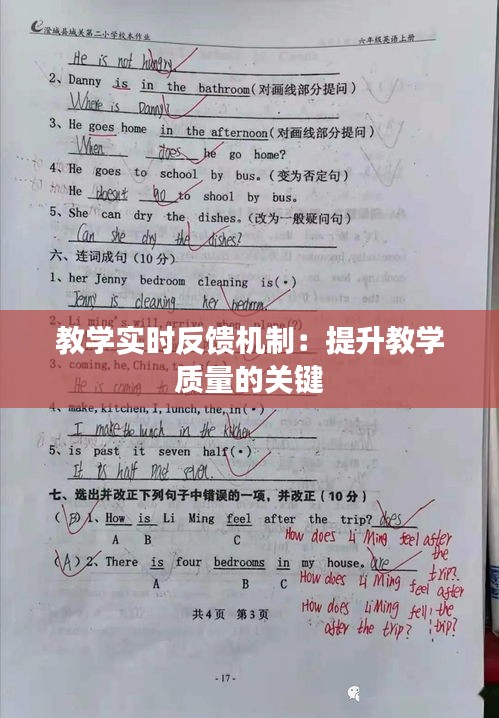 澄城县城关第二小学校本作业 六年级英语上册
He is not hungry
2、Danny is in the bathroom(对画线部分提问)
Where is Danny?
3、He goes home in the afternoon(对画线部分提问)
When does he go home?
4、He goes to school by bus。(变为否定句)
He doesn't go to shool by bus.
5、She can dry the dishes。(改为一般疑问句)
Can she dry the dishes?
六、连词成句(10 分)
1、her Jenny bedroom cleaning is(.)
Jenny is cleaning her bedroom.
教学实时反馈机制：提升教学
质量的关键
3、coming,he,China,to,
He is coming to
4、make,kitchen,I,lunch,the,in(.)
I make the lunch in the kitchen
5、is past it seven half(.)
It is half past seven.
七、选出并改正下列句子中错误的一项，并改正(10 分)
(B)1、How is Li Ming feel after the trip? does
A B C
How does Li Ming feel after
the
trip?
(A)2、There is four bedrooms in my house。are
A B C
How does Li Ming feel after
the
trip?
How does Li Ming fell
after the trip?
共 4 页 第 3 页
- 17 -